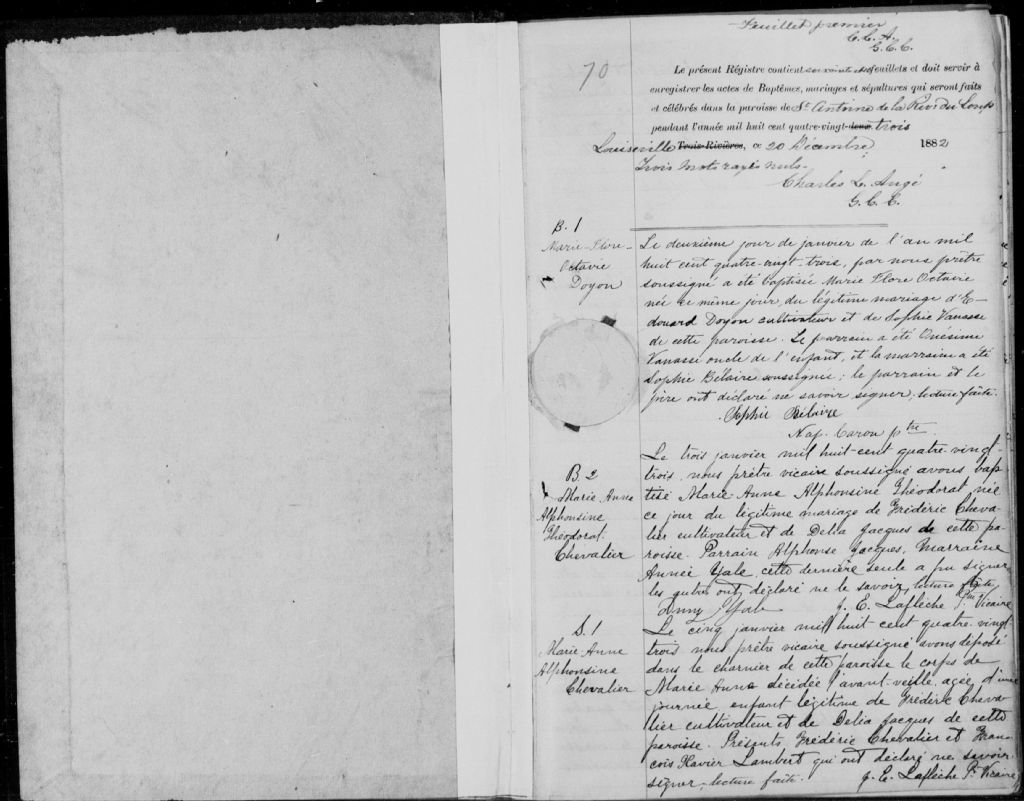 Feuillet premier
C. L. A.
G. C. C.
70
Le présent Régistre contient soixante et dix feuillets et doit servir à
enregistrer les actes de Baptêmez, mariages et sépultures qui seront faits
et célébrés dans la paroisse de St Antoine de la Riv. du Loup
pendant l'année mil huit cent quatre-vingt-deux trois
Louiseville Trois-Rivières, ce 20 Décembre 1882
Trois mots rayés nuls.
Charles L. Augé
G. C. C.
B. 1
Marie-Flore-
Octavie
Doyon
Le deuxième jour de janvier de l'an mil
huit cent quatre-vingt-trois, par nous prêtre
soussigné a été baptisée Marie Flore Octavie
née ce même jour, du légitime mariage d'E-
douard Doyon cultivateur et de Sophie Vanasse
de cette paroisse. Le parrain a été Onésime
Vanasse oncle de l'enfant, et la marraine a été
Sophie Bélaire soussignée; le parrain et le
père ont déclaré ne savoir signer, lecture faite.
Sophie Bélaire
Nap. Caron ptre
B. 2
Marie Anne
Alphonsine
Théodorat.
Chevalier
Le trois janvier mil huit-cent quatre-vingt-
trois, nous prêtre vicaire soussigné avons bap-
tisé Marie-Anne Alphonsine Théodorat, née
ce jour du légitime mariage de Frédéric Cheva-
lier cultivateur et de Delia Jacques de cette pa-
roisse. Parrain Alphonse Jacques, Marraine
Année Yale, cette dernière seule a pu signer
les autres ont déclaré ne le savoir, lecture faite
Anny Yale J. E. Laflèche Ptre Vicaire
S. 1
Marie-Anne
Alphonsine
Chevalier
Le cinq janvier mil huit-cent quatre-vingt-
trois nous prêtre vicaire soussigné avons déposé
dans le charnier de cette paroisse le corps de
Marie Anne décédée l'avant-veille, agée d'une
journée enfant légitime de Frédéric Cheva-
lier cultivateur et de Delia Jacques de cette
paroisse. Présents Frédéric Chevalier et Fran-
cois Xavier Lambert qui ont déclaré ne savoir
signer, lecture faite. J. E. Laflèche P. Vicaire